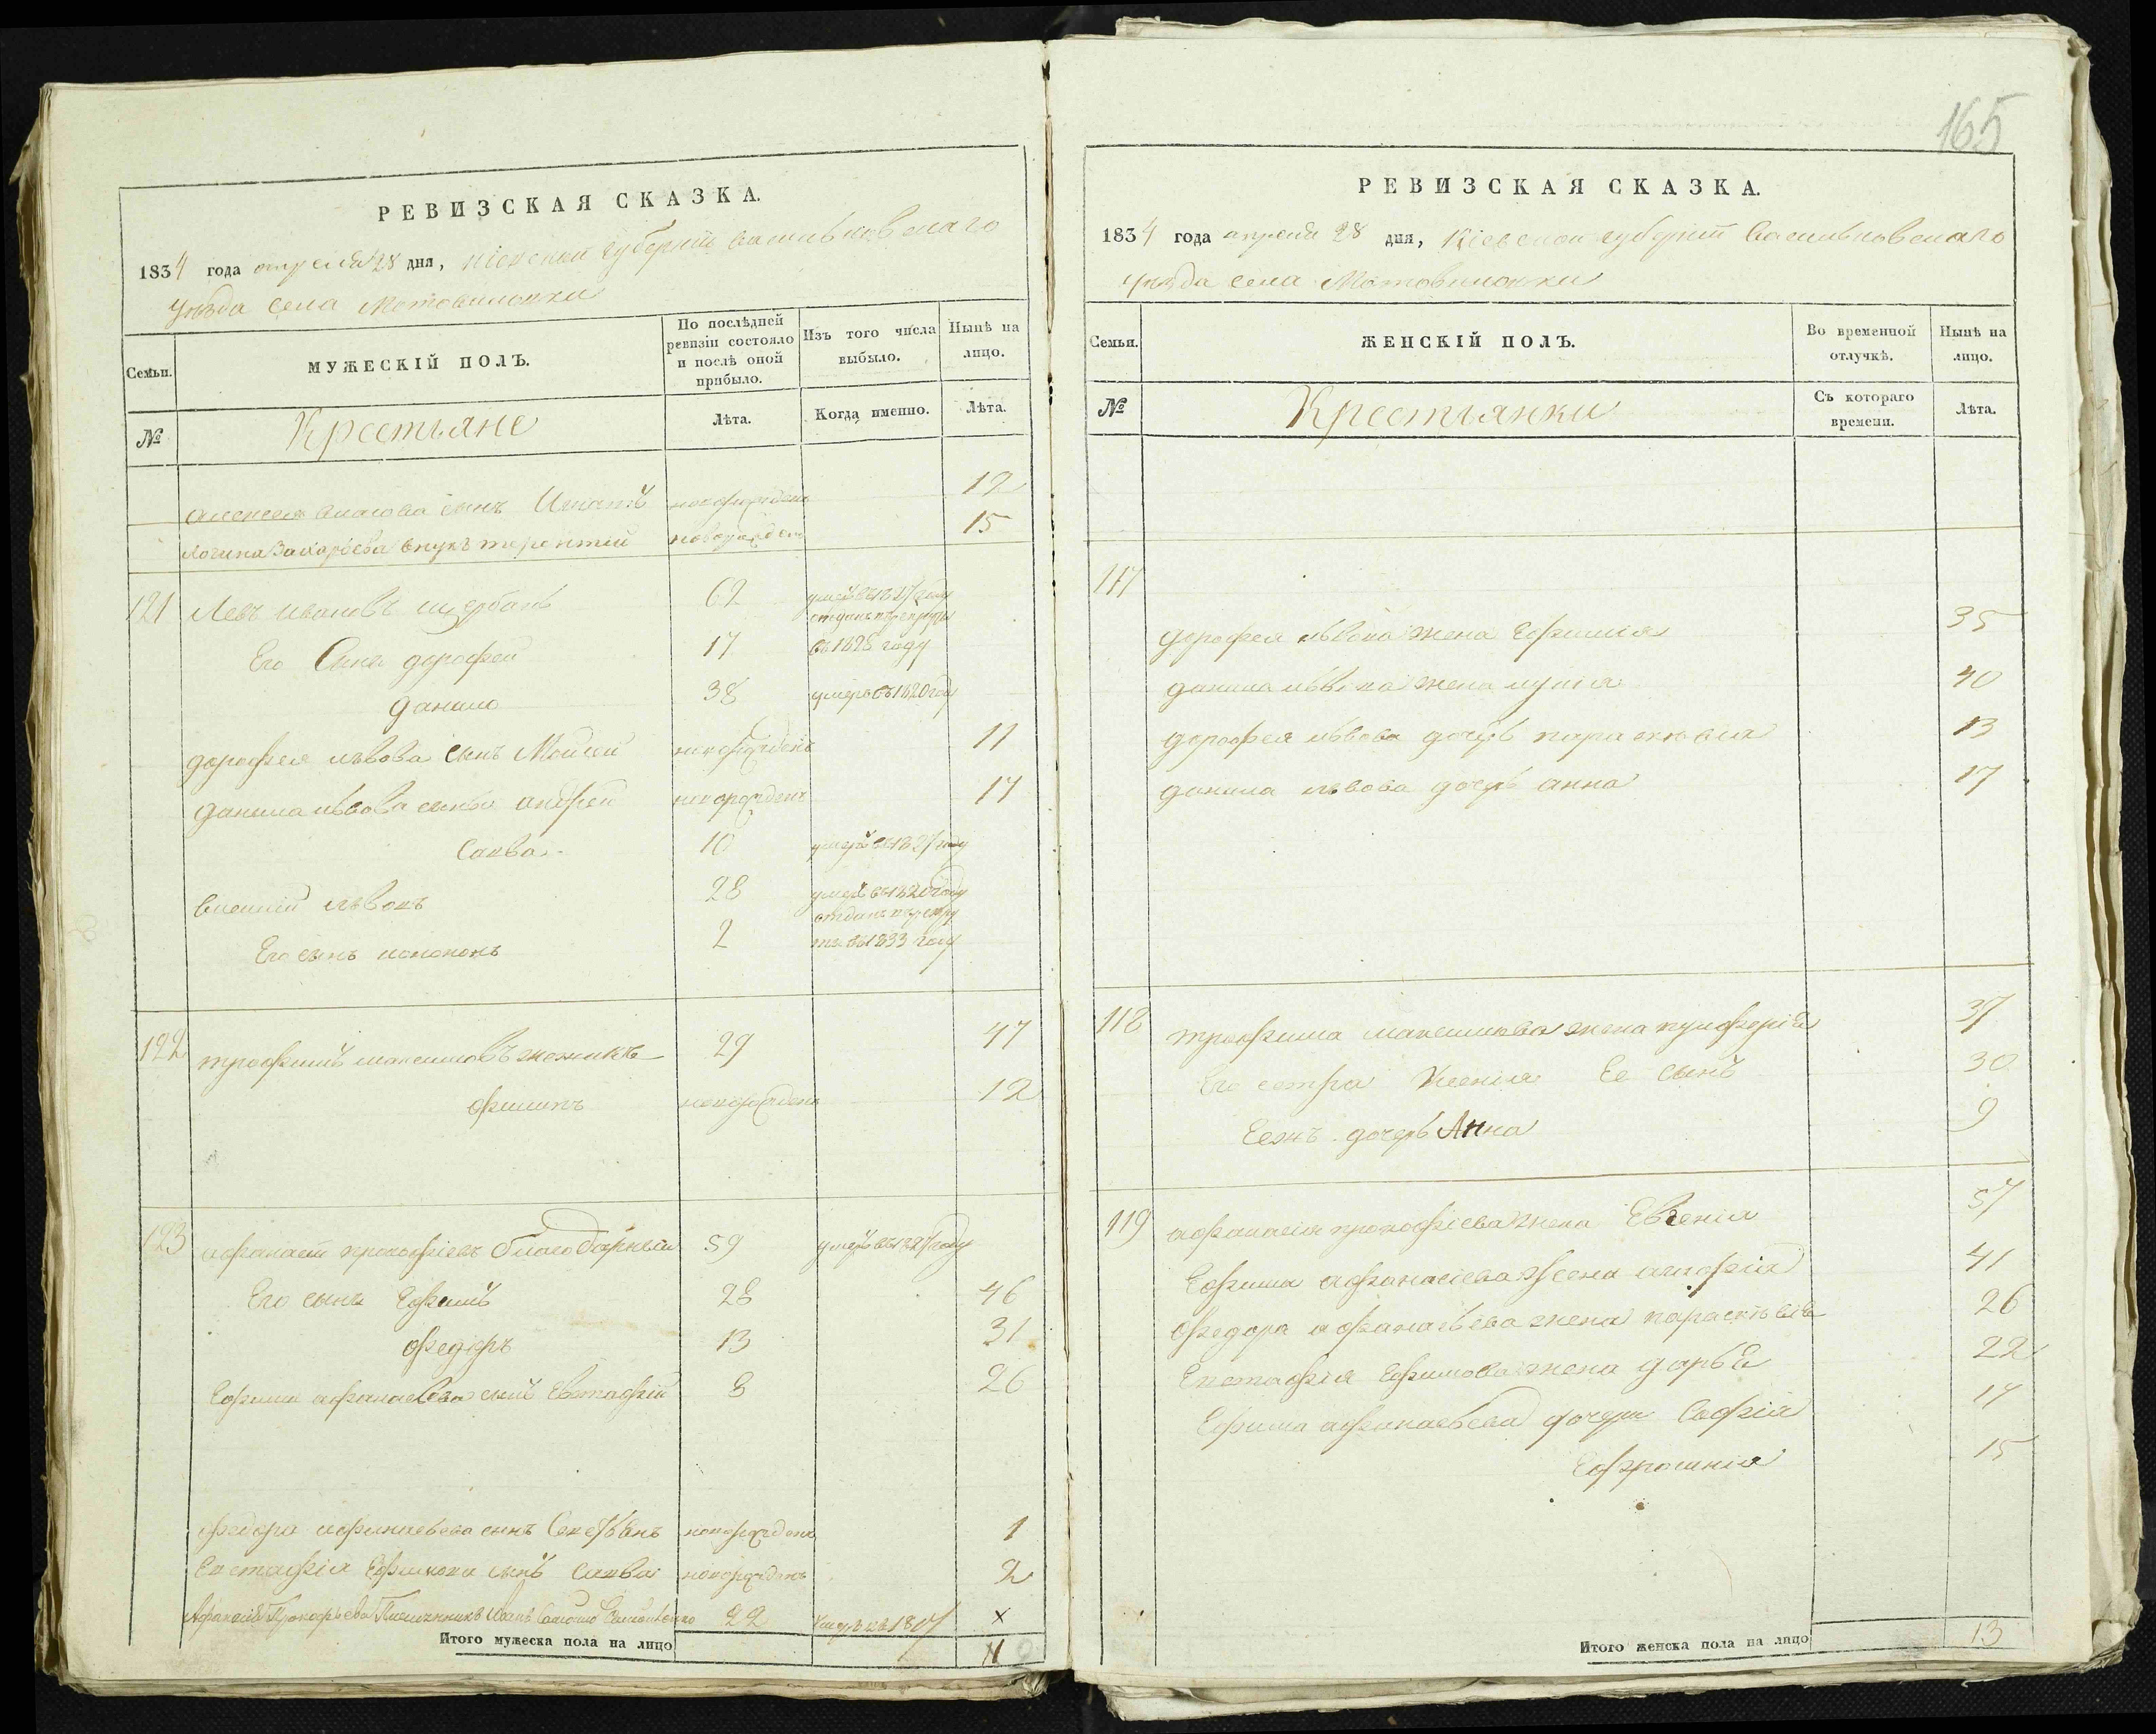 165
РЕВИЗСКАЯ СКАЗКА.
1834 года апреля 28 дня, Кіевской губерніи Васильковскаго
уезда села Мотовиловки
Семьи.
МУЖЕСКІЙ ПОЛЪ.
По послѣдней ревизіи состояло и послѣ оной прибыло.
Изъ того числа выбыло.
Нынѣ на лицо.
№
Крестьяне
Лѣта.
Когда именно.
Лѣта.
Алексея Власова сынъ Игнатъ новорожденъ 12
Логина Захарьева внукъ терентій новорожденъ 15
121 Левъ Ивановъ щербанъ 62 умеръ въ 1827 году
Его Сынъ дорофей 17 отданъ въ рекруты въ 1828 году
данило 38 умеръ въ 1820 году
дорофея львова сынъ Мойсей новорожденъ 11
данила львова сынъ андрей новорожденъ 17
Савва 10 умеръ въ 1827 году
львовъ 28 умеръ въ 1820 году
Его сынъ 2 отданъ въ рекруты въ 1833 году
122 трофимъ максимовъ 29 47
филипъ новорожденъ 12
123 афанасій прокофіевъ благодарный 59 умеръ въ 1827 году
Его сынъ Ефимъ 28 46
федоръ 13 31
Ефима афанаевова сынъ Евстафій 8 26
федора афанаевова сынъ новорожденъ 1
Евстафія Ефимова сынъ Савва новорожденъ 2
Афанасія Прокофьева 22 х
Итого мужеска пола на лицо 11
РЕВИЗСКАЯ СКАЗКА.
1834 года апреля 28 дня, Кіевской губерніи Васильковскаго
уезда села Мотовиловки
Семьи.
ЖЕНСКІЙ ПОЛЪ.
Во временной отлучкѣ.
Нынѣ на лицо.
№
Крестьянки
Съ котораго времени.
Лѣта.
117
дорофея львова жена Ефимия 35
данила львова жена 40
дорофея львова дочерь параскѣвія 13
данила львова дочерь анна 17
118 трофима максимова жена 37
Его сестра Ксенія Ее сынъ 30
дочерь Анна 9
119 афанасія прокофіева жена Евгенія 57
Ефима афанасіева жена агафія 41
федора афанасьева жена параскѣвія 26
Евстафія Ефимова жена дарья 22
Ефима афанасьева дочери Софія 17
Ефросинія 15
Итого женска пола на лицо 13